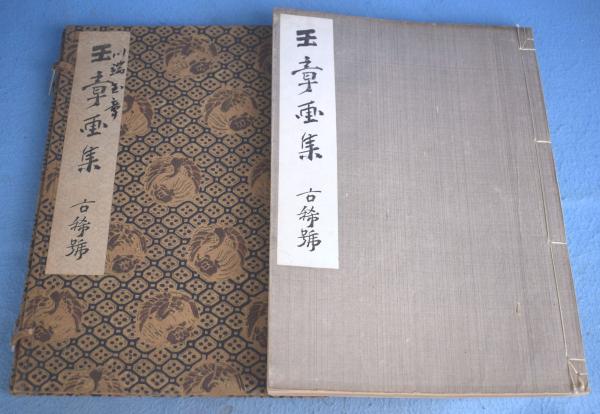 川端玉章
玉章画集
古稀號
玉章画集
古稀號